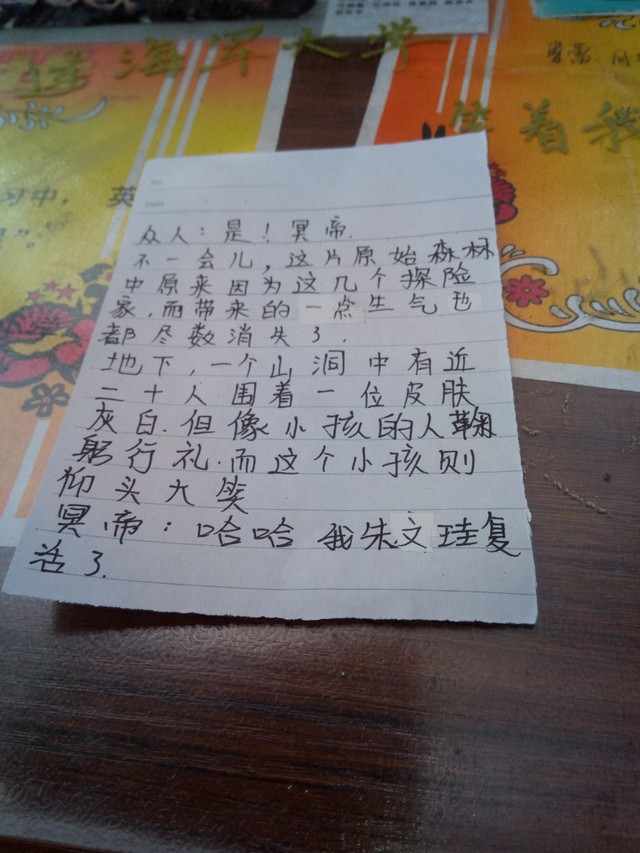 海军大学
背影
笑着我
习中，英
No.
Date
众人：是！冥帝.
不一会儿，这片原始森林
中原来因为这几个探险
家，而带来的一点生气也
都尽数消失了.
地下，一个山洞中有近
二十人围着一位皮肤
灰白.但像小孩的人鞠
躬行礼.而这个小孩则
仰头大笑
冥帝：哈哈 我朱文珪复
活了.